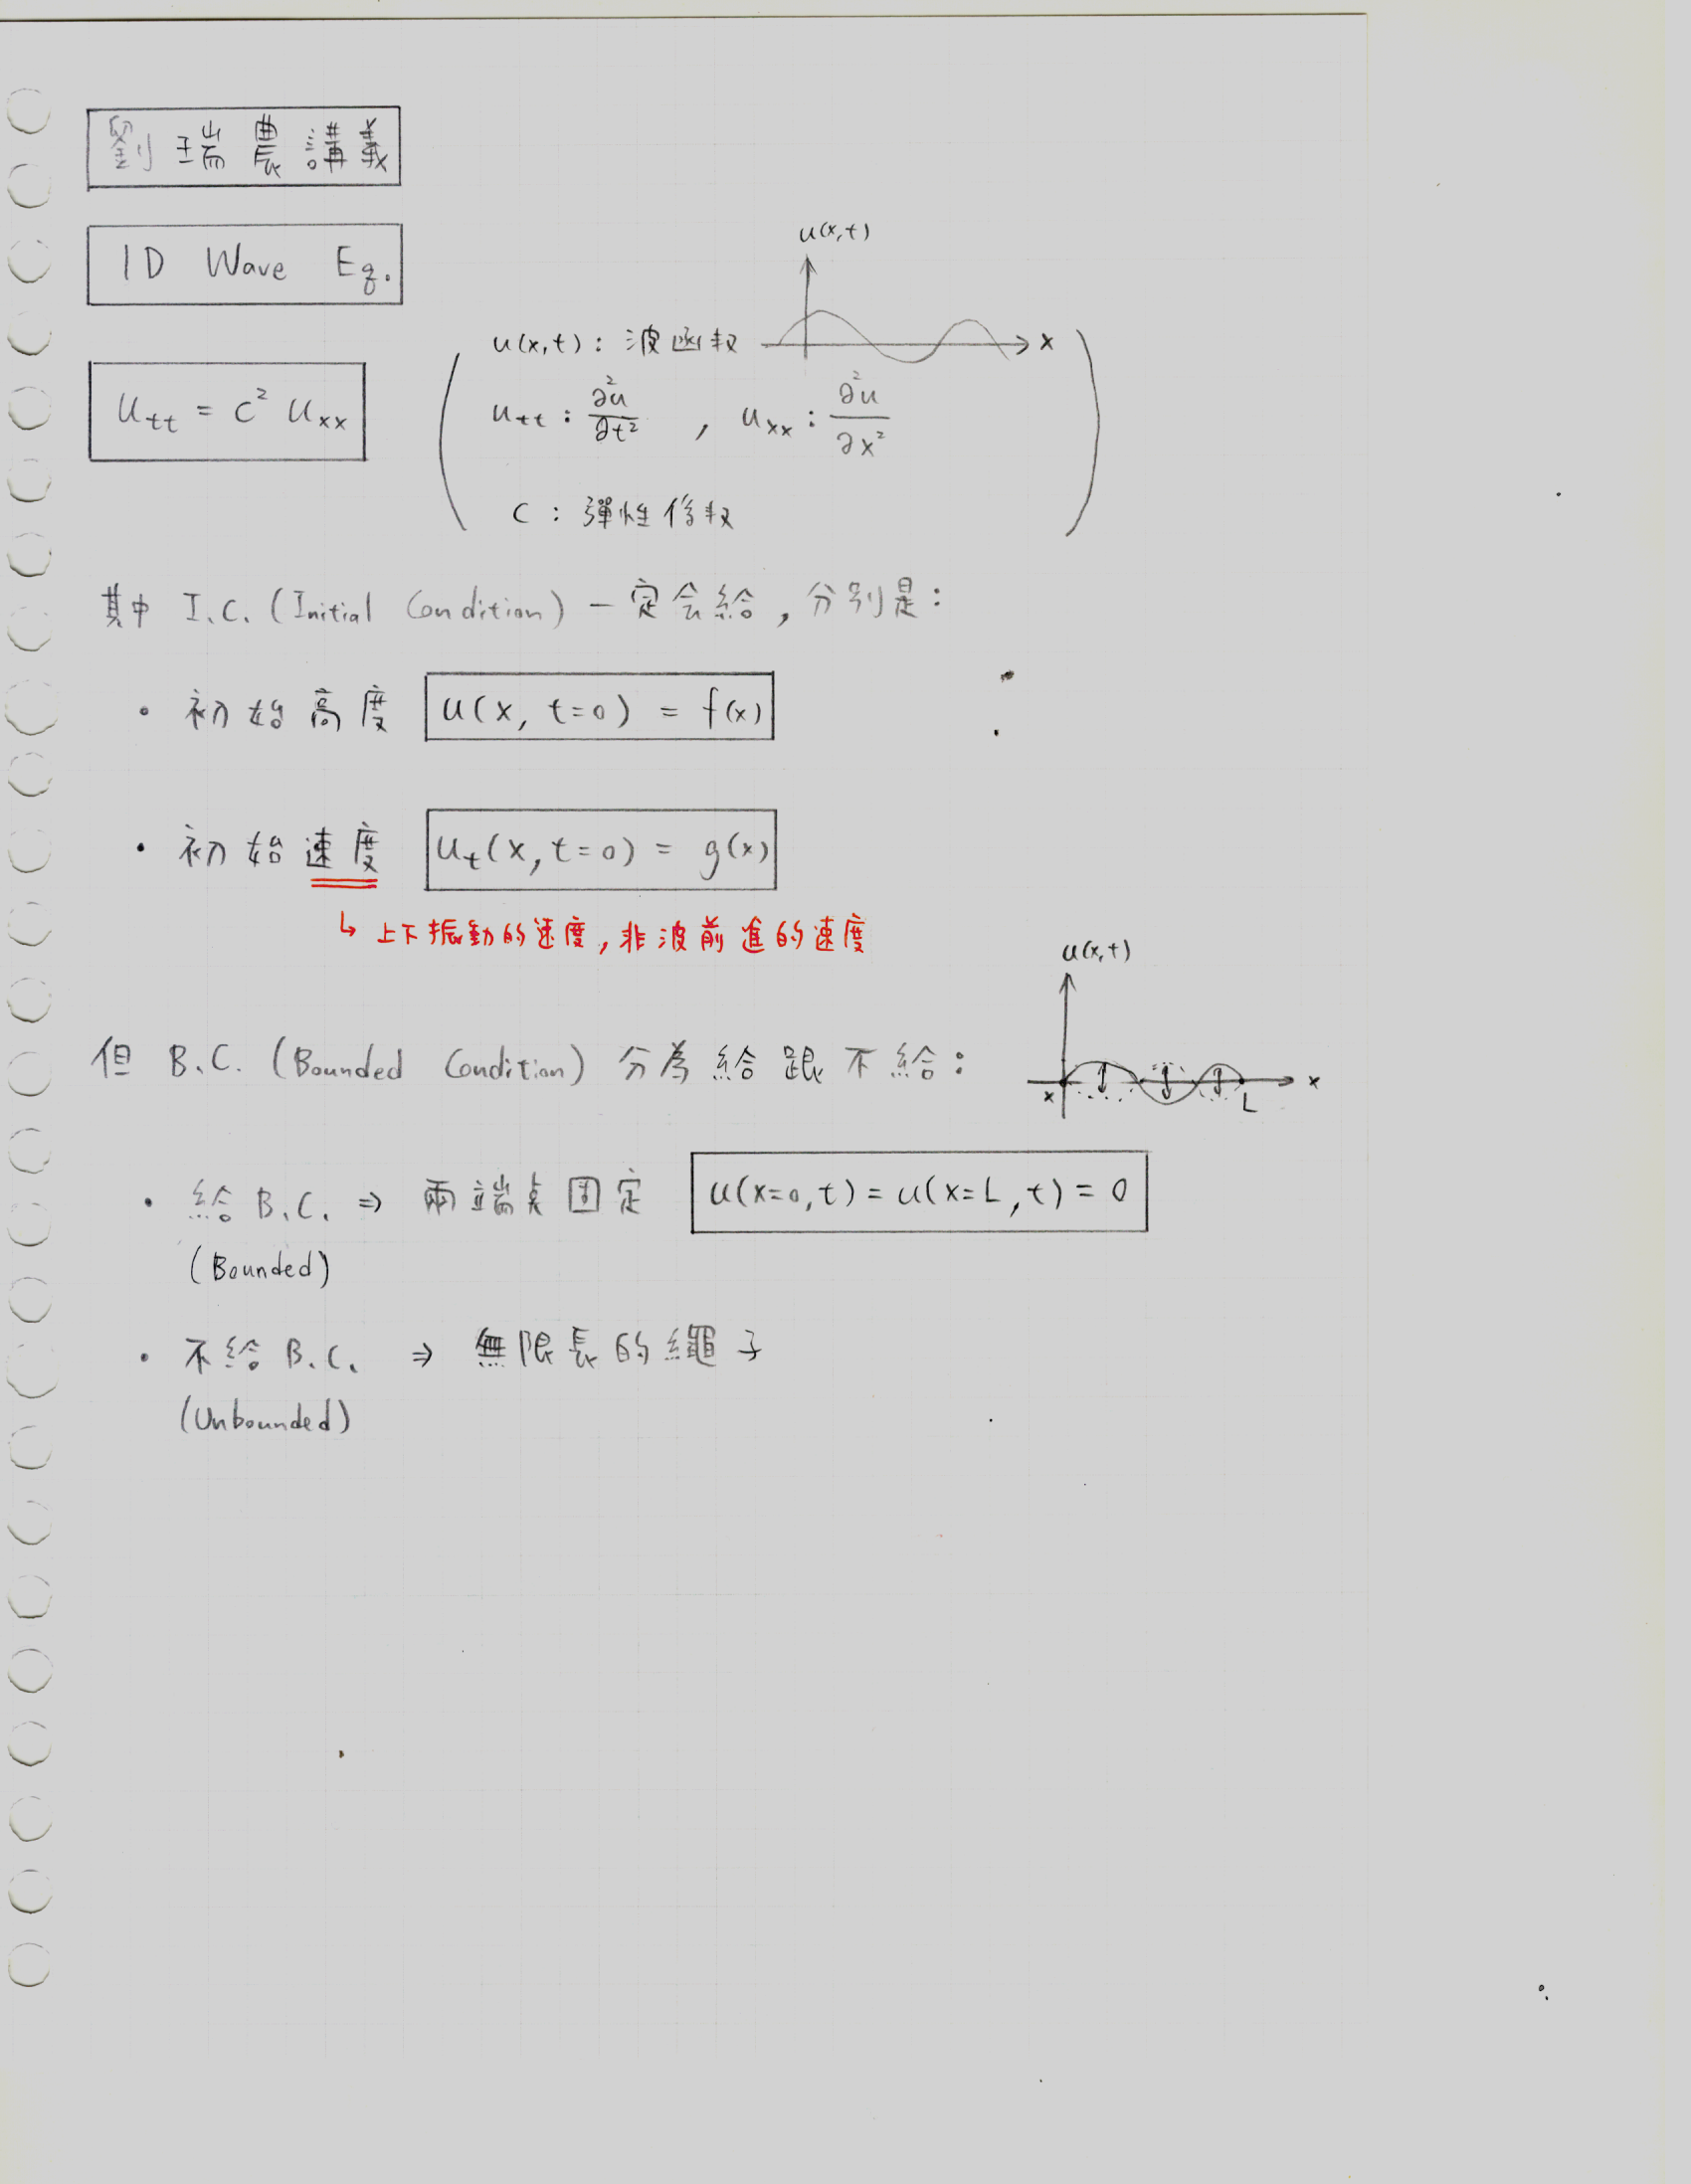 劉瑞農講義
1D Wave Eq.
u(x,t)
u(x,t) : 波函数
x
u_tt = c² u_xx
u_tt : ∂²u/∂t² , u_xx : ∂²u/∂x²
c : 彈性係数
其中 I.C. (Initial Condition) 一定会給, 分別是:
• 初始高度 u(x, t=0) = f(x)
• 初始速度 u_t(x, t=0) = g(x)
↳ 上下振動的速度, 非波前進的速度
u(x,t)
但 B.C. (Bounded Condition) 分為給跟不給:
x
L
x
• 給 B.C. ⇒ 兩端点固定 u(x=0,t) = u(x=L,t) = 0
(Bounded)
• 不給 B.C. ⇒ 無限長的繩子
(Unbounded)